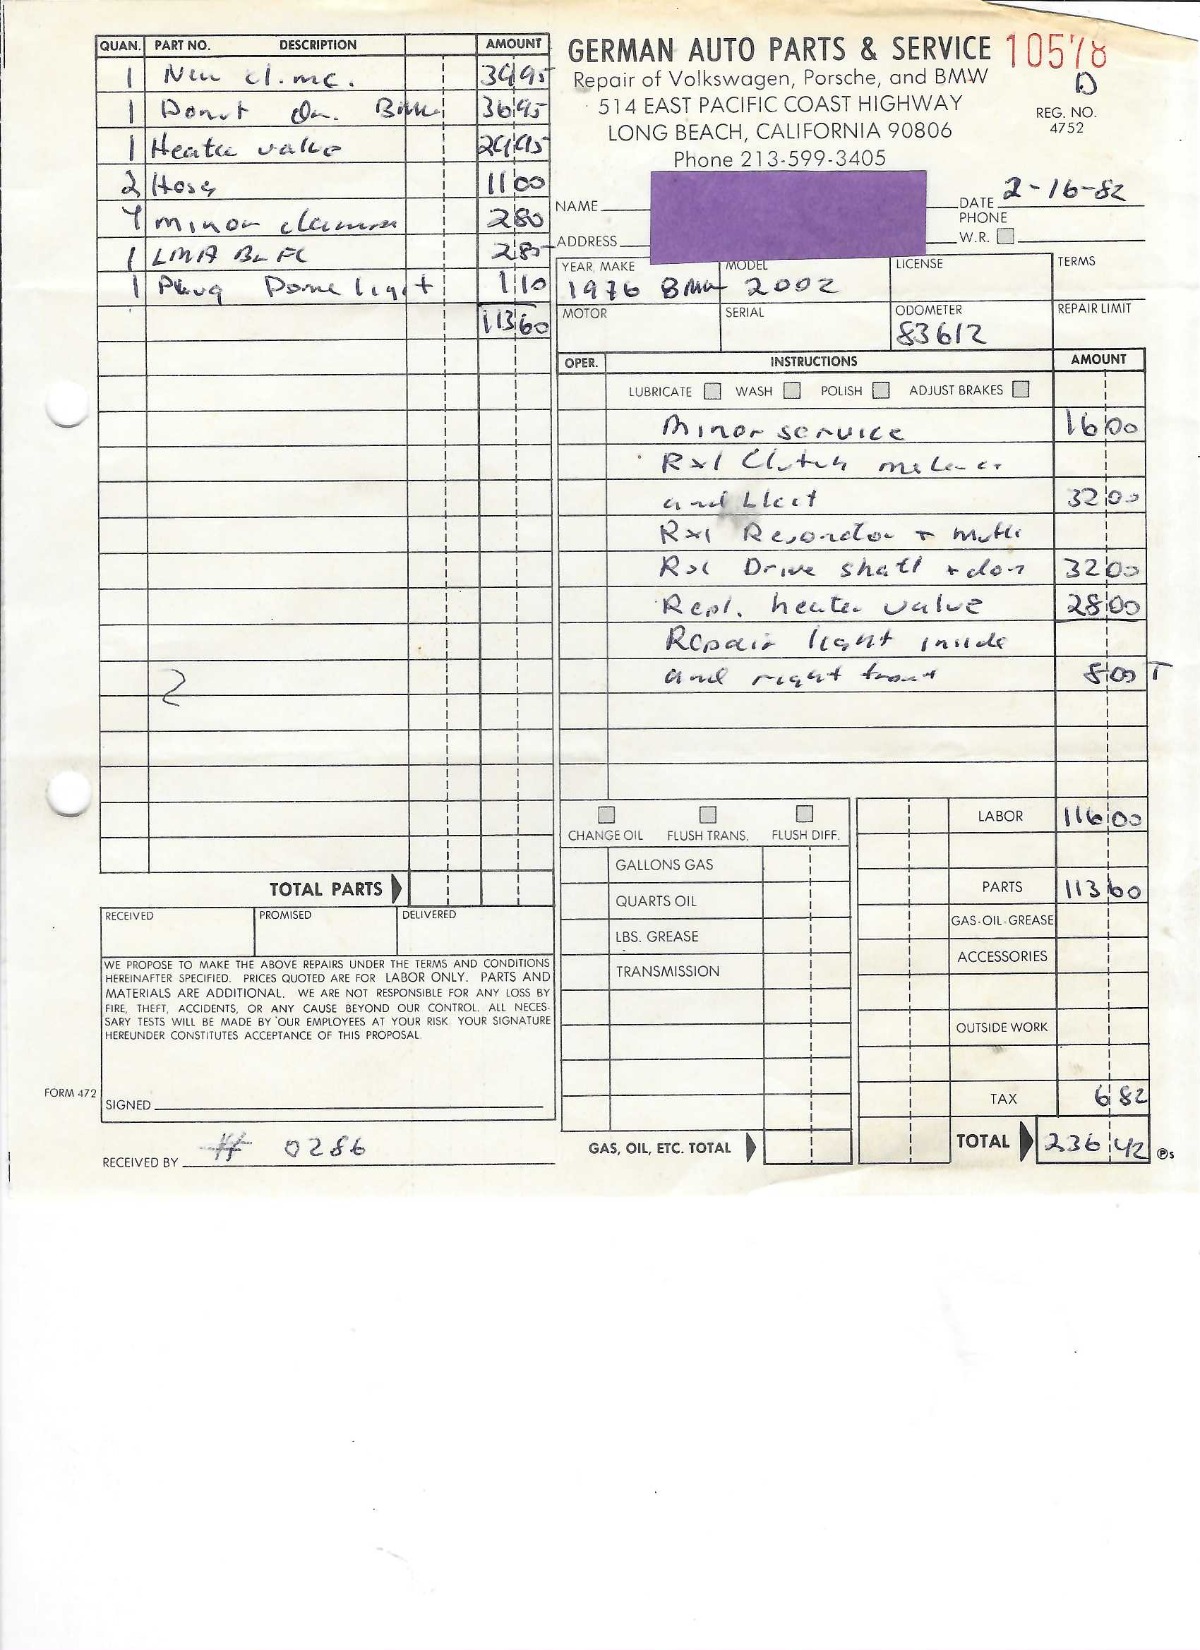 QUAN. PART NO. DESCRIPTION AMOUNT
1 New cl. mc. 3495
1 Donut On. BMW 3695
1 Heater valve 2495
2 Hose 1100
4 minor 280
1 LMA BL FL 285
1 Plug Dome light 110
11360
2
TOTAL PARTS
RECEIVED PROMISED DELIVERED
WE PROPOSE TO MAKE THE ABOVE REPAIRS UNDER THE TERMS AND CONDITIONS
HEREINAFTER SPECIFIED. PRICES QUOTED ARE FOR LABOR ONLY. PARTS AND
MATERIALS ARE ADDITIONAL. WE ARE NOT RESPONSIBLE FOR ANY LOSS BY
FIRE, THEFT, ACCIDENTS, OR ANY CAUSE BEYOND OUR CONTROL. ALL NECES-
SARY TESTS WILL BE MADE BY OUR EMPLOYEES AT YOUR RISK. YOUR SIGNATURE
HEREUNDER CONSTITUTES ACCEPTANCE OF THIS PROPOSAL.
FORM 472
SIGNED
# 0286
RECEIVED BY
GERMAN AUTO PARTS & SERVICE 10578
Repair of Volkswagen, Porsche, and BMW D
514 EAST PACIFIC COAST HIGHWAY REG. NO.
LONG BEACH, CALIFORNIA 90806 4752
Phone 213-599-3405
NAME DATE 2-16-82
PHONE
ADDRESS W.R.
YEAR, MAKE MODEL LICENSE TERMS
1976 BMW 2002
MOTOR SERIAL ODOMETER REPAIR LIMIT
83612
OPER. INSTRUCTIONS AMOUNT
LUBRICATE WASH POLISH ADJUST BRAKES
Minor service 1600
Rxl Clutch
and 3200
Rxl Resonator +
Rxl Drive shaft + don 3200
Repl. heater valve 2800
Repair light inside
and right front 800 T
CHANGE OIL FLUSH TRANS. FLUSH DIFF.
GALLONS GAS
QUARTS OIL
LBS. GREASE
TRANSMISSION
GAS, OIL, ETC. TOTAL
LABOR 11600
PARTS 11360
GAS-OIL-GREASE
ACCESSORIES
OUTSIDE WORK
TAX 682
TOTAL 236 42